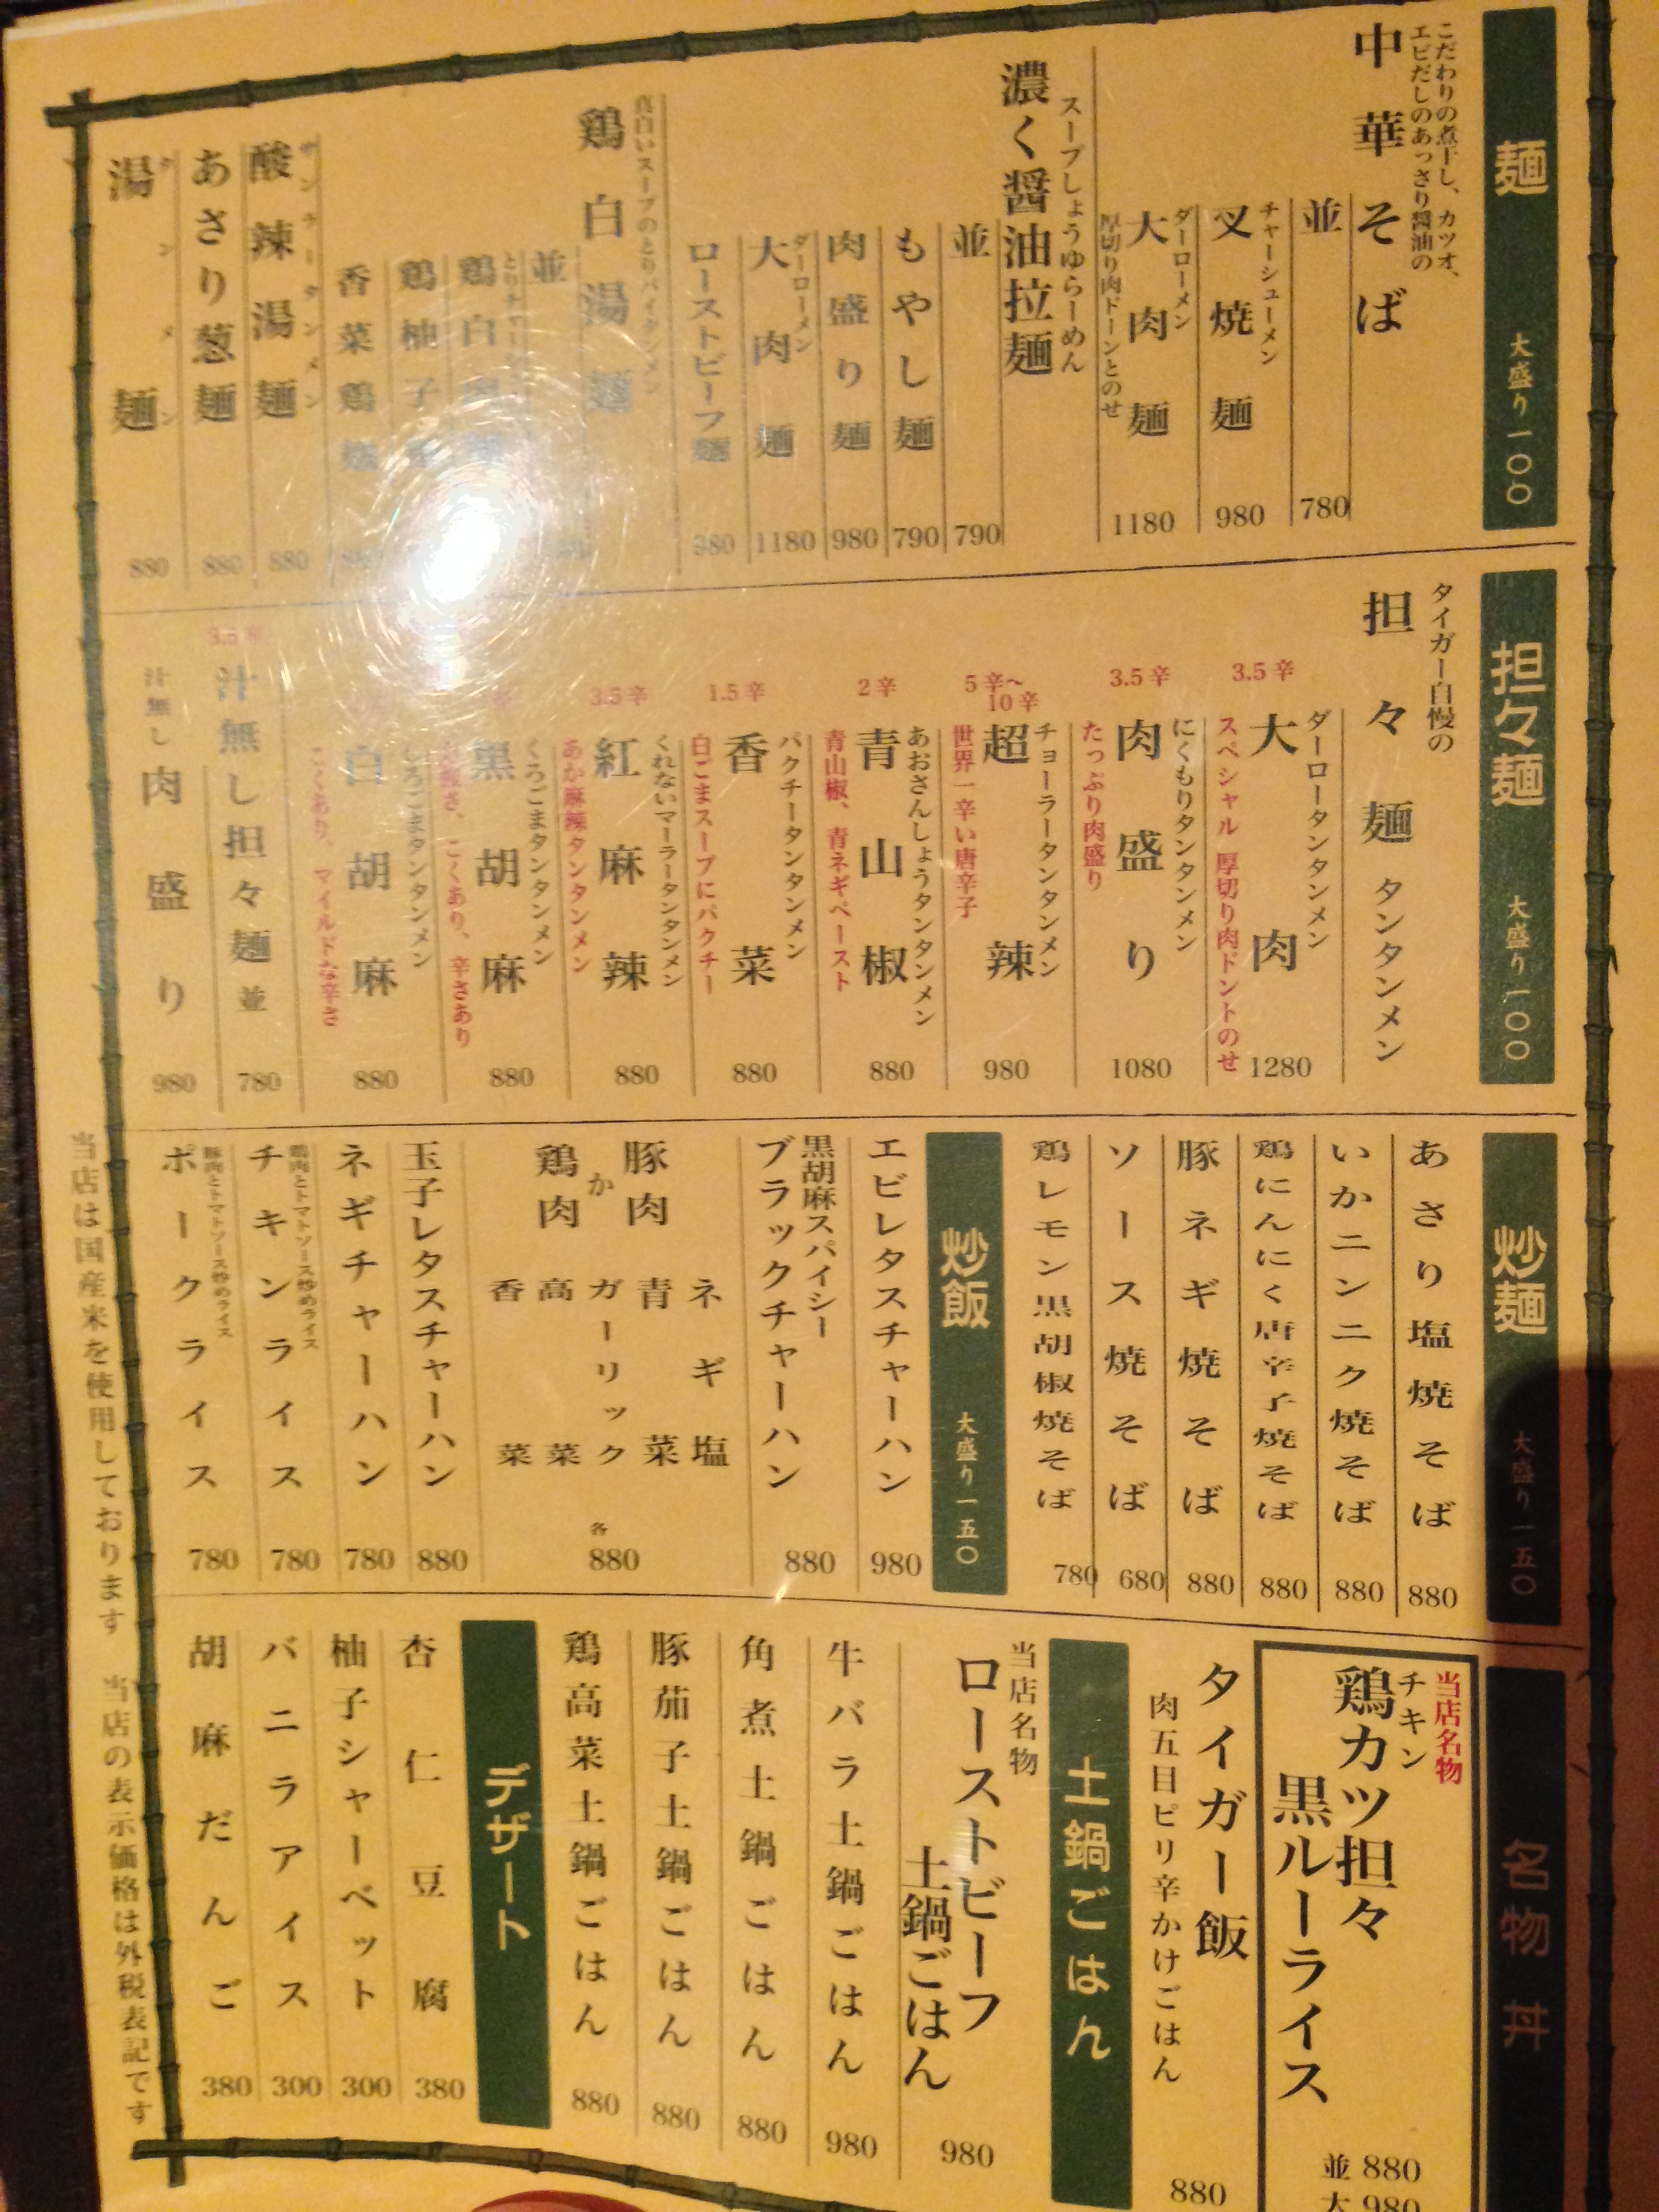 麺 大盛り一〇〇
こだわりの煮干し、カツオ、
エビだしのあっさり醤油の
中華そば
並 780
チャーシューメン
叉焼麺 980
ダーローメン
大肉麺 1180
厚切り肉ドーンとのせ
スープしょうゆらーめん
濃く醤油拉麺
並 790
もやし麺 790
肉盛り麺 980
ダーローメン
大肉麺 1180
ローストビーフ麺 980
真白いスープのとりパイタンメン
鶏白湯麺
並
鶏白
鶏柚子
香菜鶏
サンラータンメン
酸辣湯麺 880
あさり葱麺 880
タンメン
湯麺 880
担々麺 大盛り一〇〇
タイガー自慢の
担々麺 タンタンメン
3.5辛
ダーロータンタンメン
大肉 1280
スペシャル 厚切り肉ドントのせ
3.5辛
にくもりタンタンメン
肉盛り 1080
たっぷり肉盛り
5辛〜
10辛
チョーラータンタンメン
超辣 980
世界一辛い唐辛子
2辛
あおさんしょうタンタンメン
青山椒 880
青山椒、青ネギペースト
1.5辛
パクチータンタンメン
香菜 880
白ごまスープにパクチー
3.5辛
くれないマーラータンタンメン
紅麻辣 880
あか麻辣タンタンメン
くろごまタンタンメン
黒胡麻 880
こくあり、辛さあり
しろごまタンタンメン
白胡麻 880
こくあり、マイルドな辛さ
3.5辛
汁無し担々麺 並 780
汁無し肉盛り 980
炒麺 大盛り一五〇
あさり塩焼そば 880
いかニンニク焼そば 880
鶏にんにく唐辛子焼そば 880
豚ネギ焼そば 880
ソース焼そば 680
鶏レモン黒胡椒焼そば 780
炒飯 大盛り一五〇
エビレタスチャーハン 980
黒胡麻スパイシー
ブラックチャーハン 880
豚肉
か
鶏肉
ネギ塩
青菜
ガーリック
高菜
香菜
各
880
玉子レタスチャーハン 880
ネギチャーハン 780
鶏肉とトマトソース炒めライス
チキンライス 780
豚肉とトマトソース炒めライス
ポークライス 780
名物丼
当店名物
チキン
鶏カツ担々
黒ルーライス
並 880
大 980
タイガー飯 880
肉五目ピリ辛かけごはん
土鍋ごはん
当店名物
ローストビーフ
土鍋ごはん 980
牛バラ土鍋ごはん 980
角煮土鍋ごはん 880
豚茄子土鍋ごはん 880
鶏高菜土鍋ごはん 880
デザート
杏仁豆腐 380
柚子シャーベット 300
バニラアイス 300
胡麻だんご 380
当店は国産米を使用しております 当店の表示価格は外税表記です